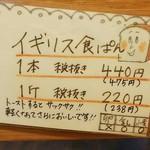 イギリス食ぱん
1本 税抜き 440円
(475円)
1斤 税抜き 220円
(238円)
トーストすると サックサク!!
軽くなおさらにおいしいです!!